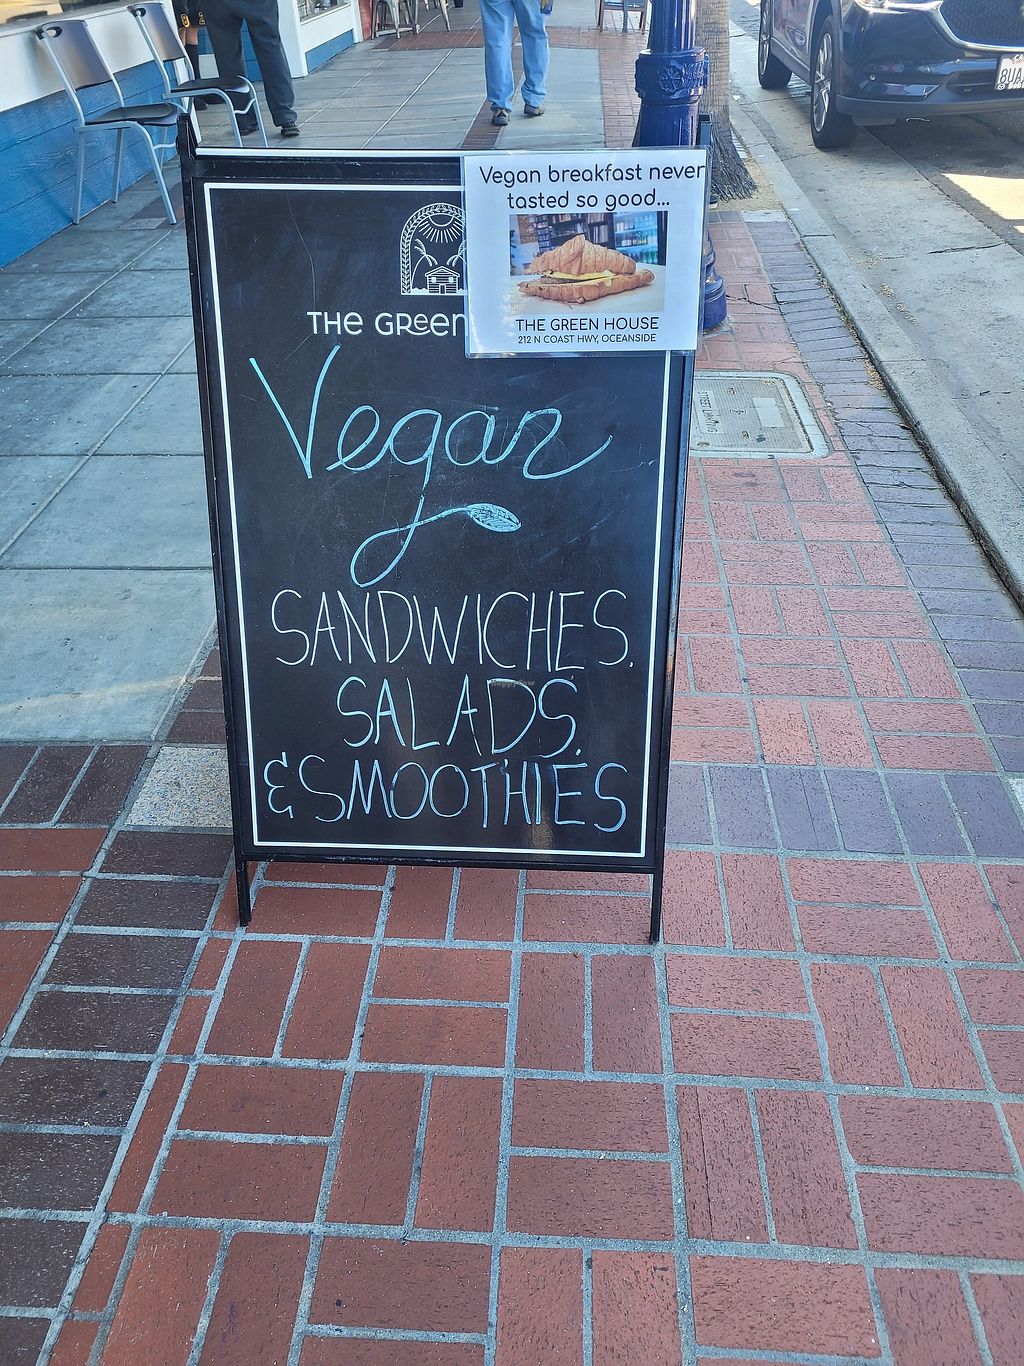 Vegan breakfast never
tasted so good...
THE GREEN HOUSE
212 N COAST HWY, OCEANSIDE
THE GReen
Vegan
SANDWICHES,
SALADS,
& SMOOTHIES
STREET LIGHTING
8UA